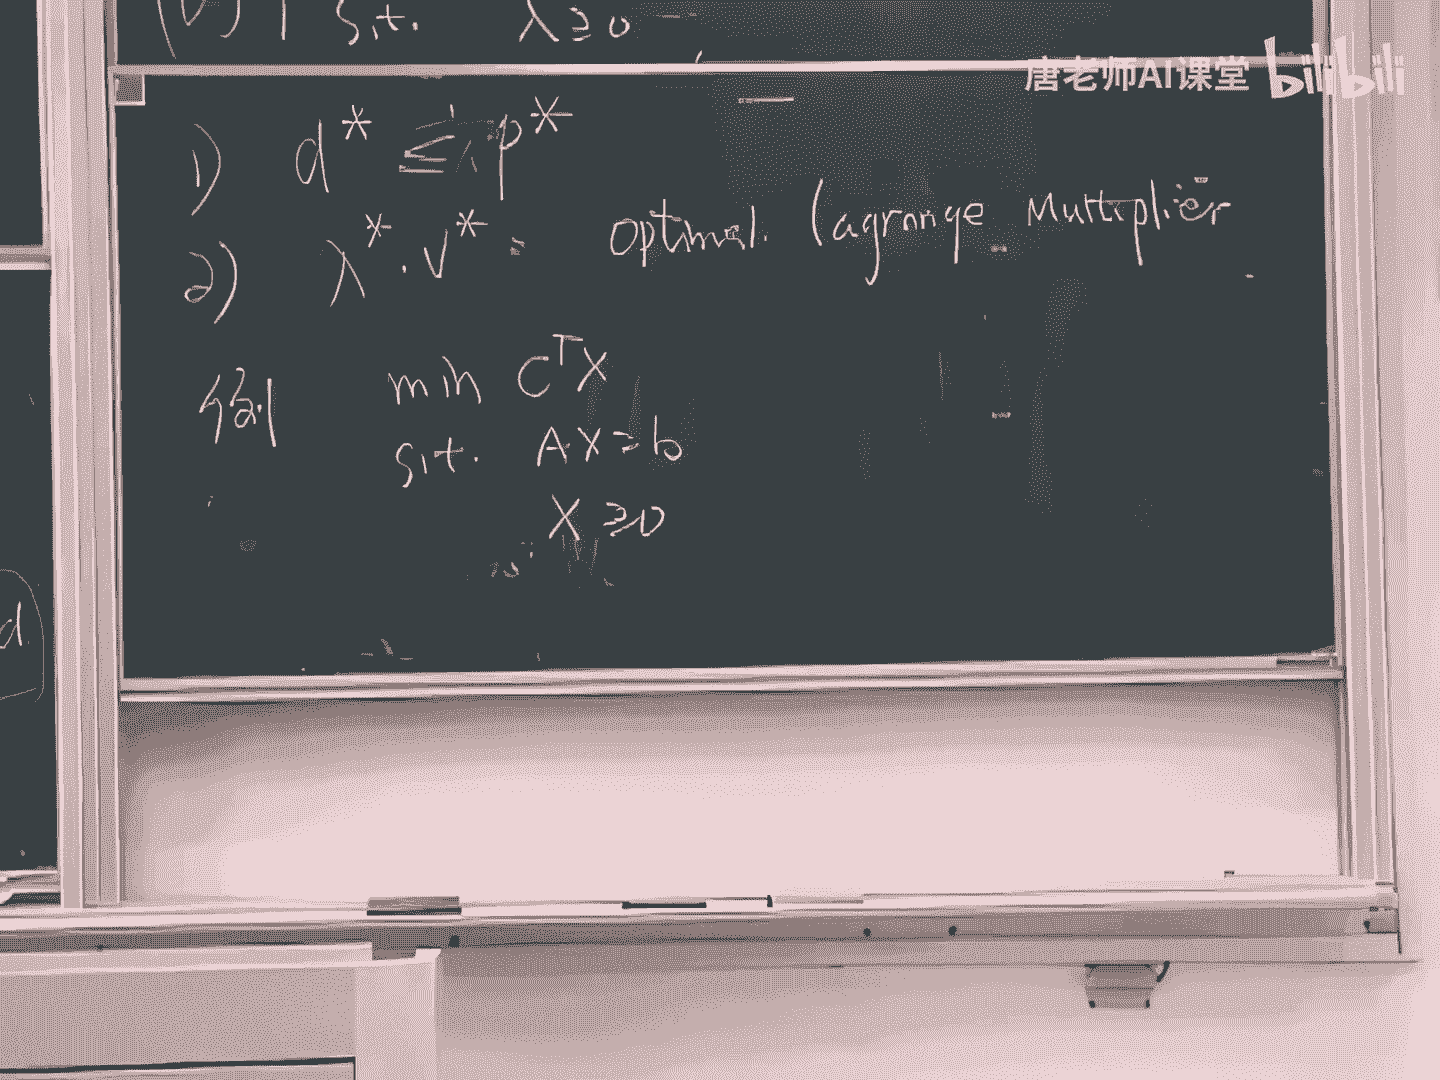 (D) s.t. λ≥0
唐老师AI课堂 bilibili
1) d* ≤ p*
2) λ*. ν* : Optimal Lagrange Multiplier
例 min CᵀX
s.t. AX=b
X≥0
d